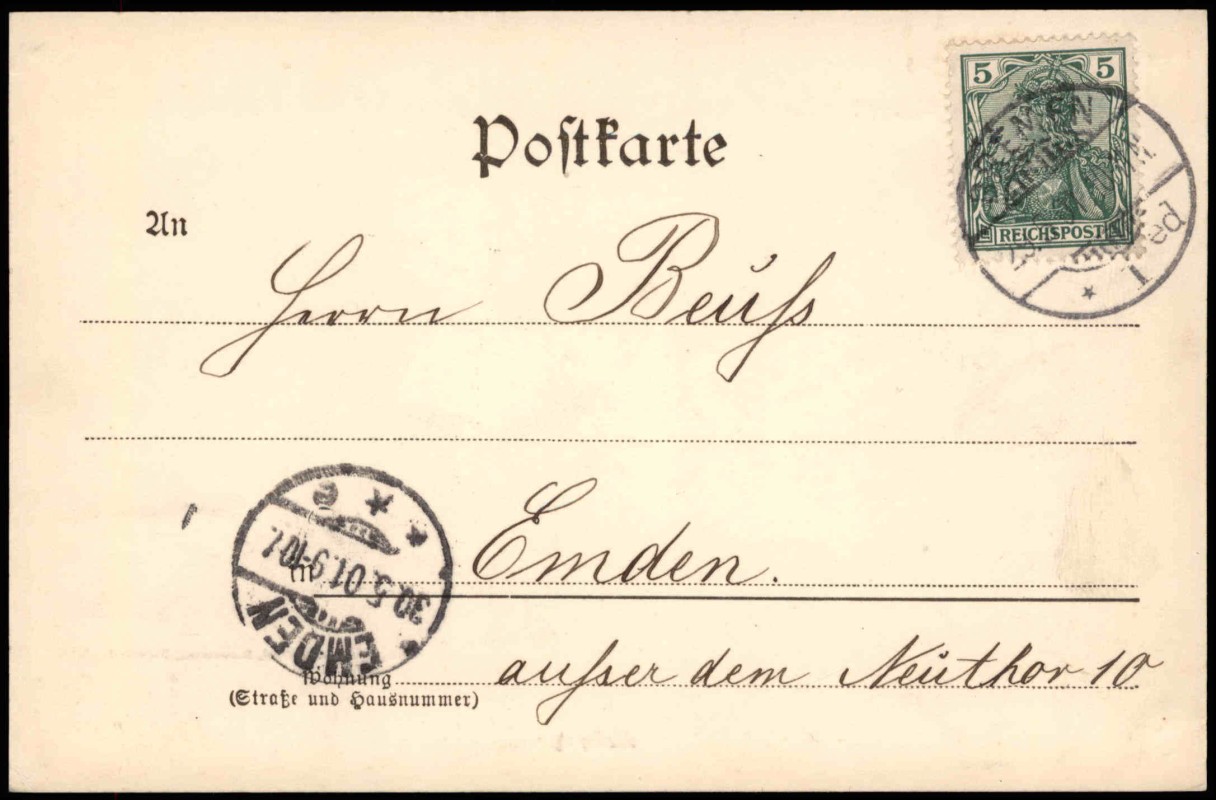 5 5
REICHSPOST
BREMEN
1
Postkarte
An
Herrn Beuß
in Emden.
EMDEN
30.5.01.9-10V.
e
Wohnung
(Straße und Hausnummer)
außer dem Neuthor 10